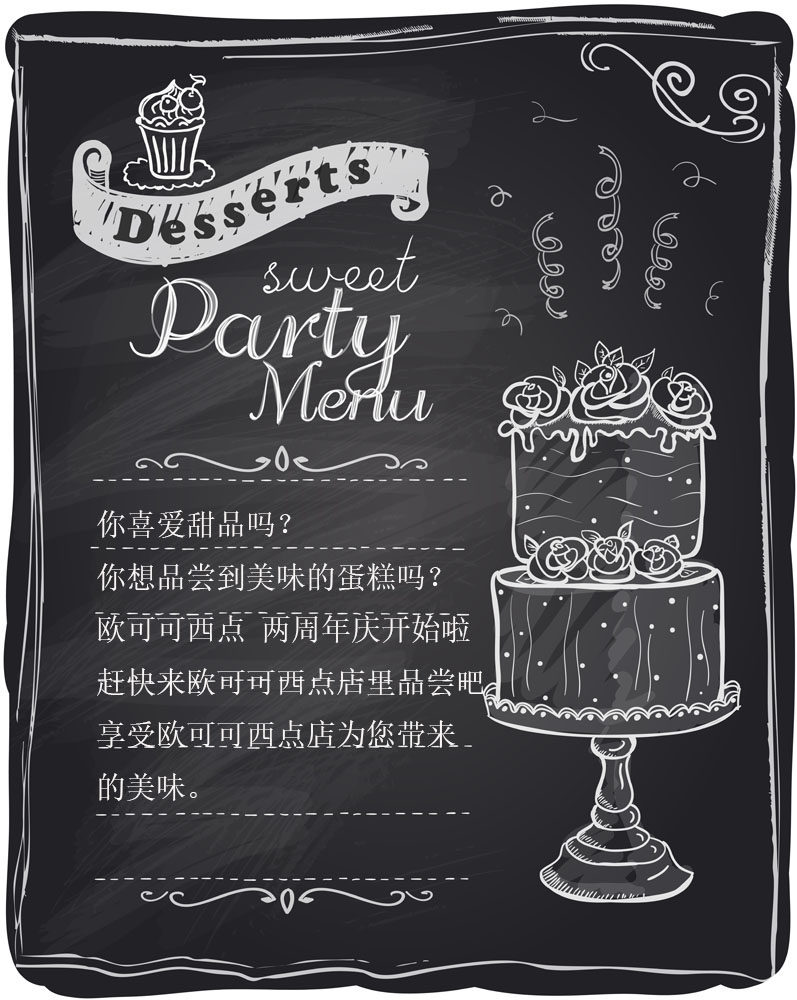 Desserts
sweet
Party
Menu
你喜爱甜品吗？
你想品尝到美味的蛋糕吗？
欧可可西点 两周年庆开始啦
赶快来欧可可西点店里品尝吧
享受欧可可西点店为您带来
的美味。